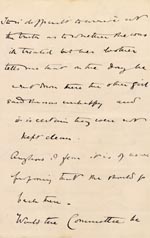 It is difficult to arrive at
the truth as to whether the cows
is treated but her brother
tells me that on the day he
went down there the other girl
said she was unhappy and
it is certain they were not
kept clean.
Anyhow I fear it is of no use
proposing that she should go
back there.
Would the Committee be